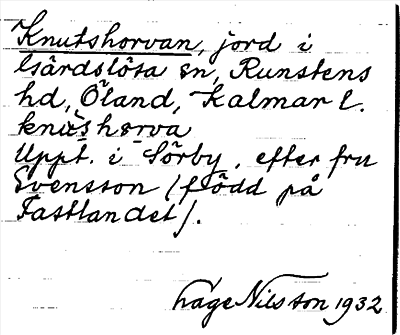 Knutshorvan, jord i
Gärdslösa sn, Runstens
hd, Öland, Kalmar l.
knutshorva
Uppt. i Sörby, efter fru
Svensson (född på
Fastlandet).
Åge Nilsson 1932